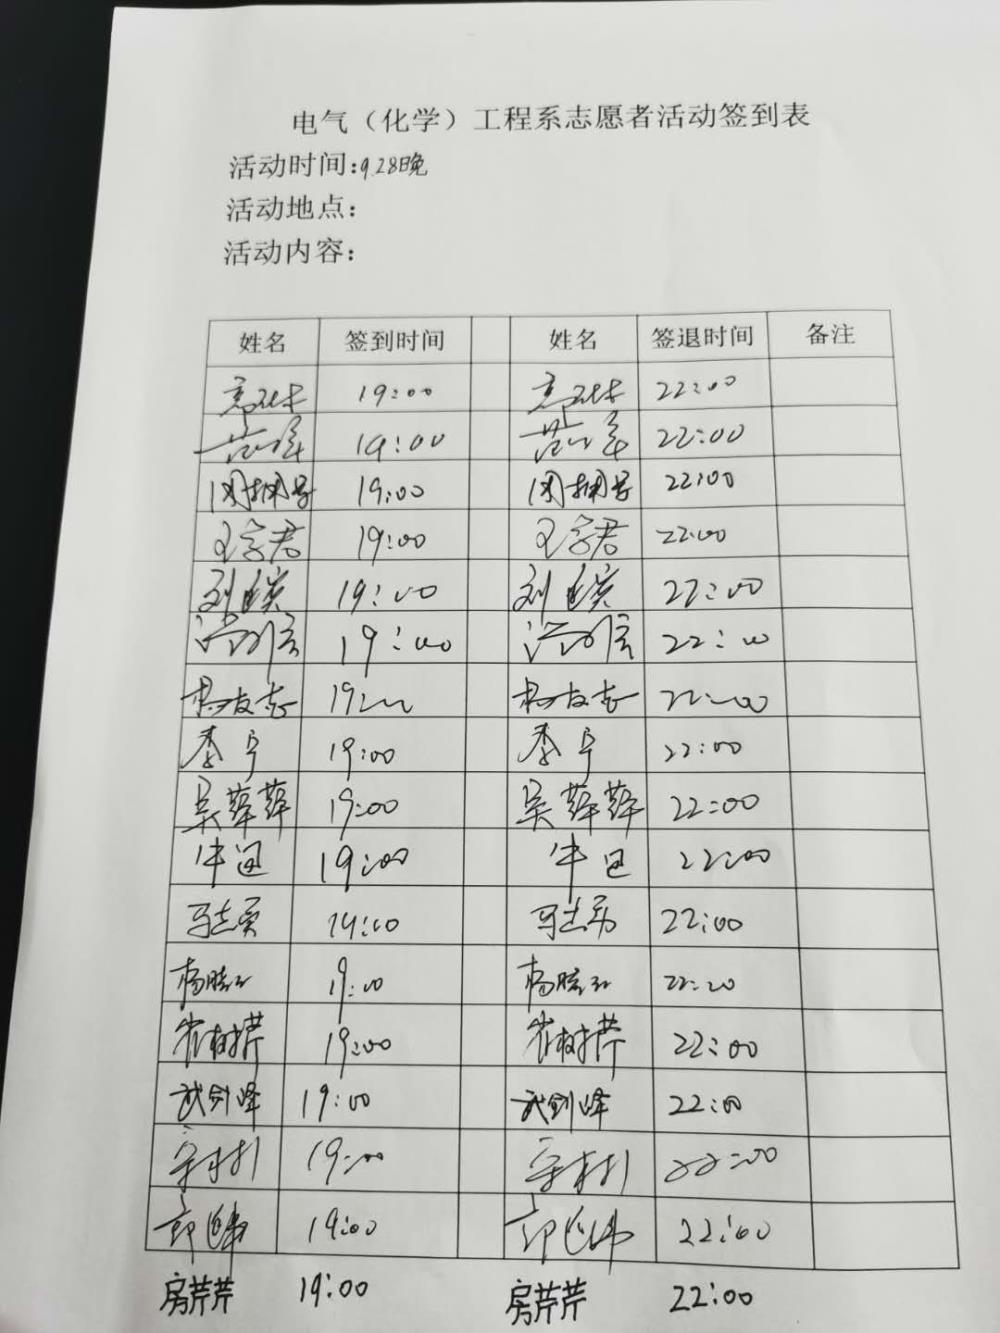 电气（化学）工程系志愿者活动签到表
活动时间：9.28晚
活动地点：
活动内容：
姓名 签到时间 姓名 签退时间 备注
19:00 22:00
19:00 22:00
19:00 22:00
19:00 22:00
刘 19:00 刘 22:00
19:00 22:00
杨友志 19:00 杨友志 22:00
李宁 19:00 李宁 22:00
吴萍萍 19:00 吴萍萍 22:00
牛通 19:00 牛通 22:00
马志勇 19:00 马志勇 22:00
杨晓红 19:00 杨晓红 22:00
崔树芹 19:00 崔树芹 22:00
武剑峰 19:00 武剑峰 22:00
19:00 22:00
郭 19:00 郭 22:00
房芹芹 19:00 房芹芹 22:00